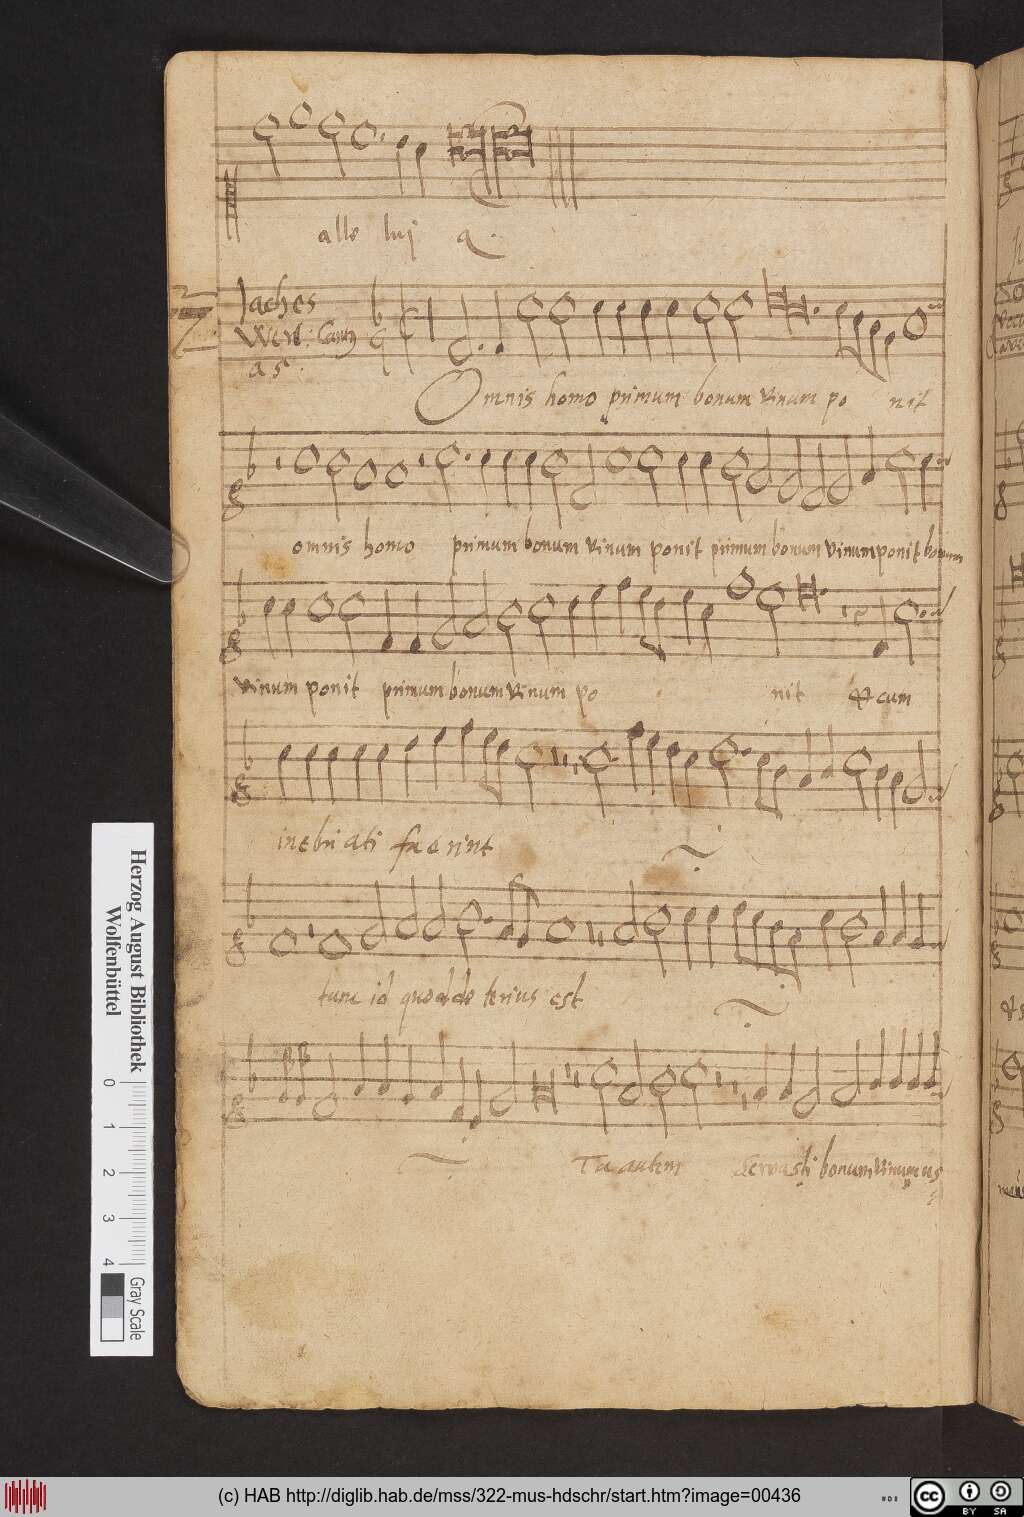 alle luj a.
Jaches
Wert: Cantus
a 5.
Omnis homo primum bonum vinum po nit
omnis homo primum bonum vinum ponit primum bonum vinum ponit bonum
vinum ponit primum bonum vinum po nit et cum
inebri ati fue rint
tunc id quod de terius est
Tu autem servasti bonum vinum us
Herzog August Bibliothek
Wolfenbüttel
0 1 2 3 4
Gray Scale
(c) HAB http://diglib.hab.de/mss/322-mus-hdschr/start.htm?image=00436
cc BY SA